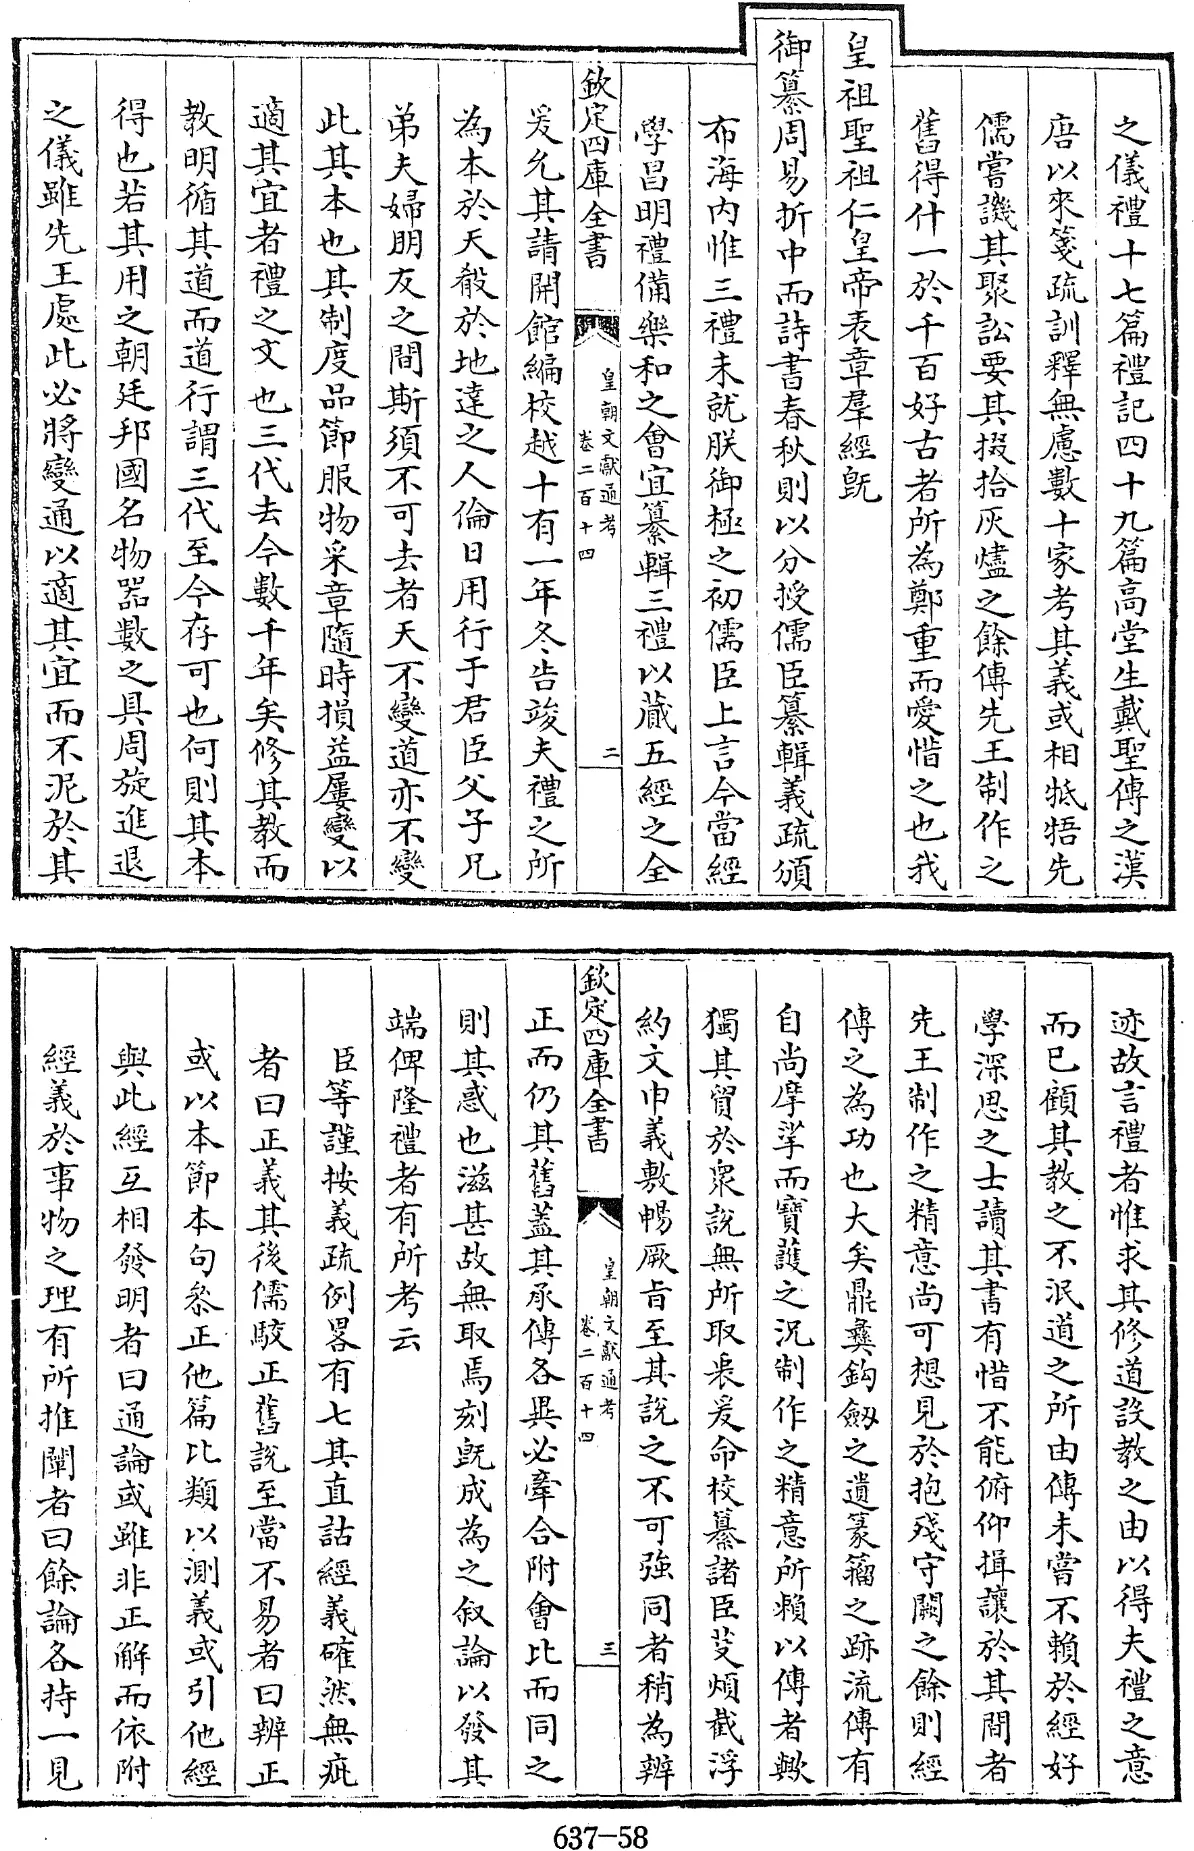 之儀禮十七篇禮記四十九篇高堂生戴聖傳之漢
唐以來箋疏訓釋無慮數十家考其義或相牴牾先
儒嘗譏其聚訟要其掇拾灰燼之餘傳先王制作之
舊得什一於千百好古者所為鄭重而愛惜之也我
皇祖聖祖仁皇帝表章羣經旣
御纂周易折中而詩書春秋則以分授儒臣纂輯義疏頒
布海內惟三禮未就朕御極之初儒臣上言今當經
學昌明禮備樂和之會宜纂輯三禮以蕆五經之全
欽定四庫全書 皇朝文獻通考 卷二百十四 二
爰允其請開館編校越十有一年冬告竣夫禮之所
為本於天殽於地達之人倫日用行于君臣父子兄
弟夫婦朋友之間斯須不可去者天不變道亦不變
此其本也其制度品節服物采章隨時損益屢變以
適其宜者禮之文也三代去今數千年矣修其教而
教明循其道而道行謂三代至今存可也何則其本
得也若其用之朝廷邦國名物器數之具周旋進退
之儀雖先王處此必將變通以適其宜而不泥於其
迹故言禮者惟求其修道設教之由以得夫禮之意
而已顧其教之不泯道之所由傳未嘗不賴於經好
學深思之士讀其書有惜不能俯仰揖讓於其間者
先王制作之精意尚可想見於抱殘守闕之餘則經
傳之為功也大矣鼎彝鈎劔之遺篆籀之跡流傳有
自尚摩挲而寶護之況制作之精意所賴以傳者歟
獨其貿於衆說無所取衷爰命校纂諸臣芟煩截浮
約文申義敷暢厥旨至其說之不可強同者稍為辨
欽定四庫全書 皇朝文獻通考 卷二百十四 三
正而仍其舊蓋其承傳各異必牽合附會比而同之
則其惑也滋甚故無取焉刻旣成為之叙論以發其
端俾隆禮者有所考云
臣等謹按義疏例畧有七其直詁經義確然無疵
者曰正義其後儒駮正舊說至當不易者曰辨正
或以本節本句叅正他篇比類以測義或引他經
與此經互相發明者曰通論或雖非正解而依附
經義於事物之理有所推闡者曰餘論各持一見
637-58